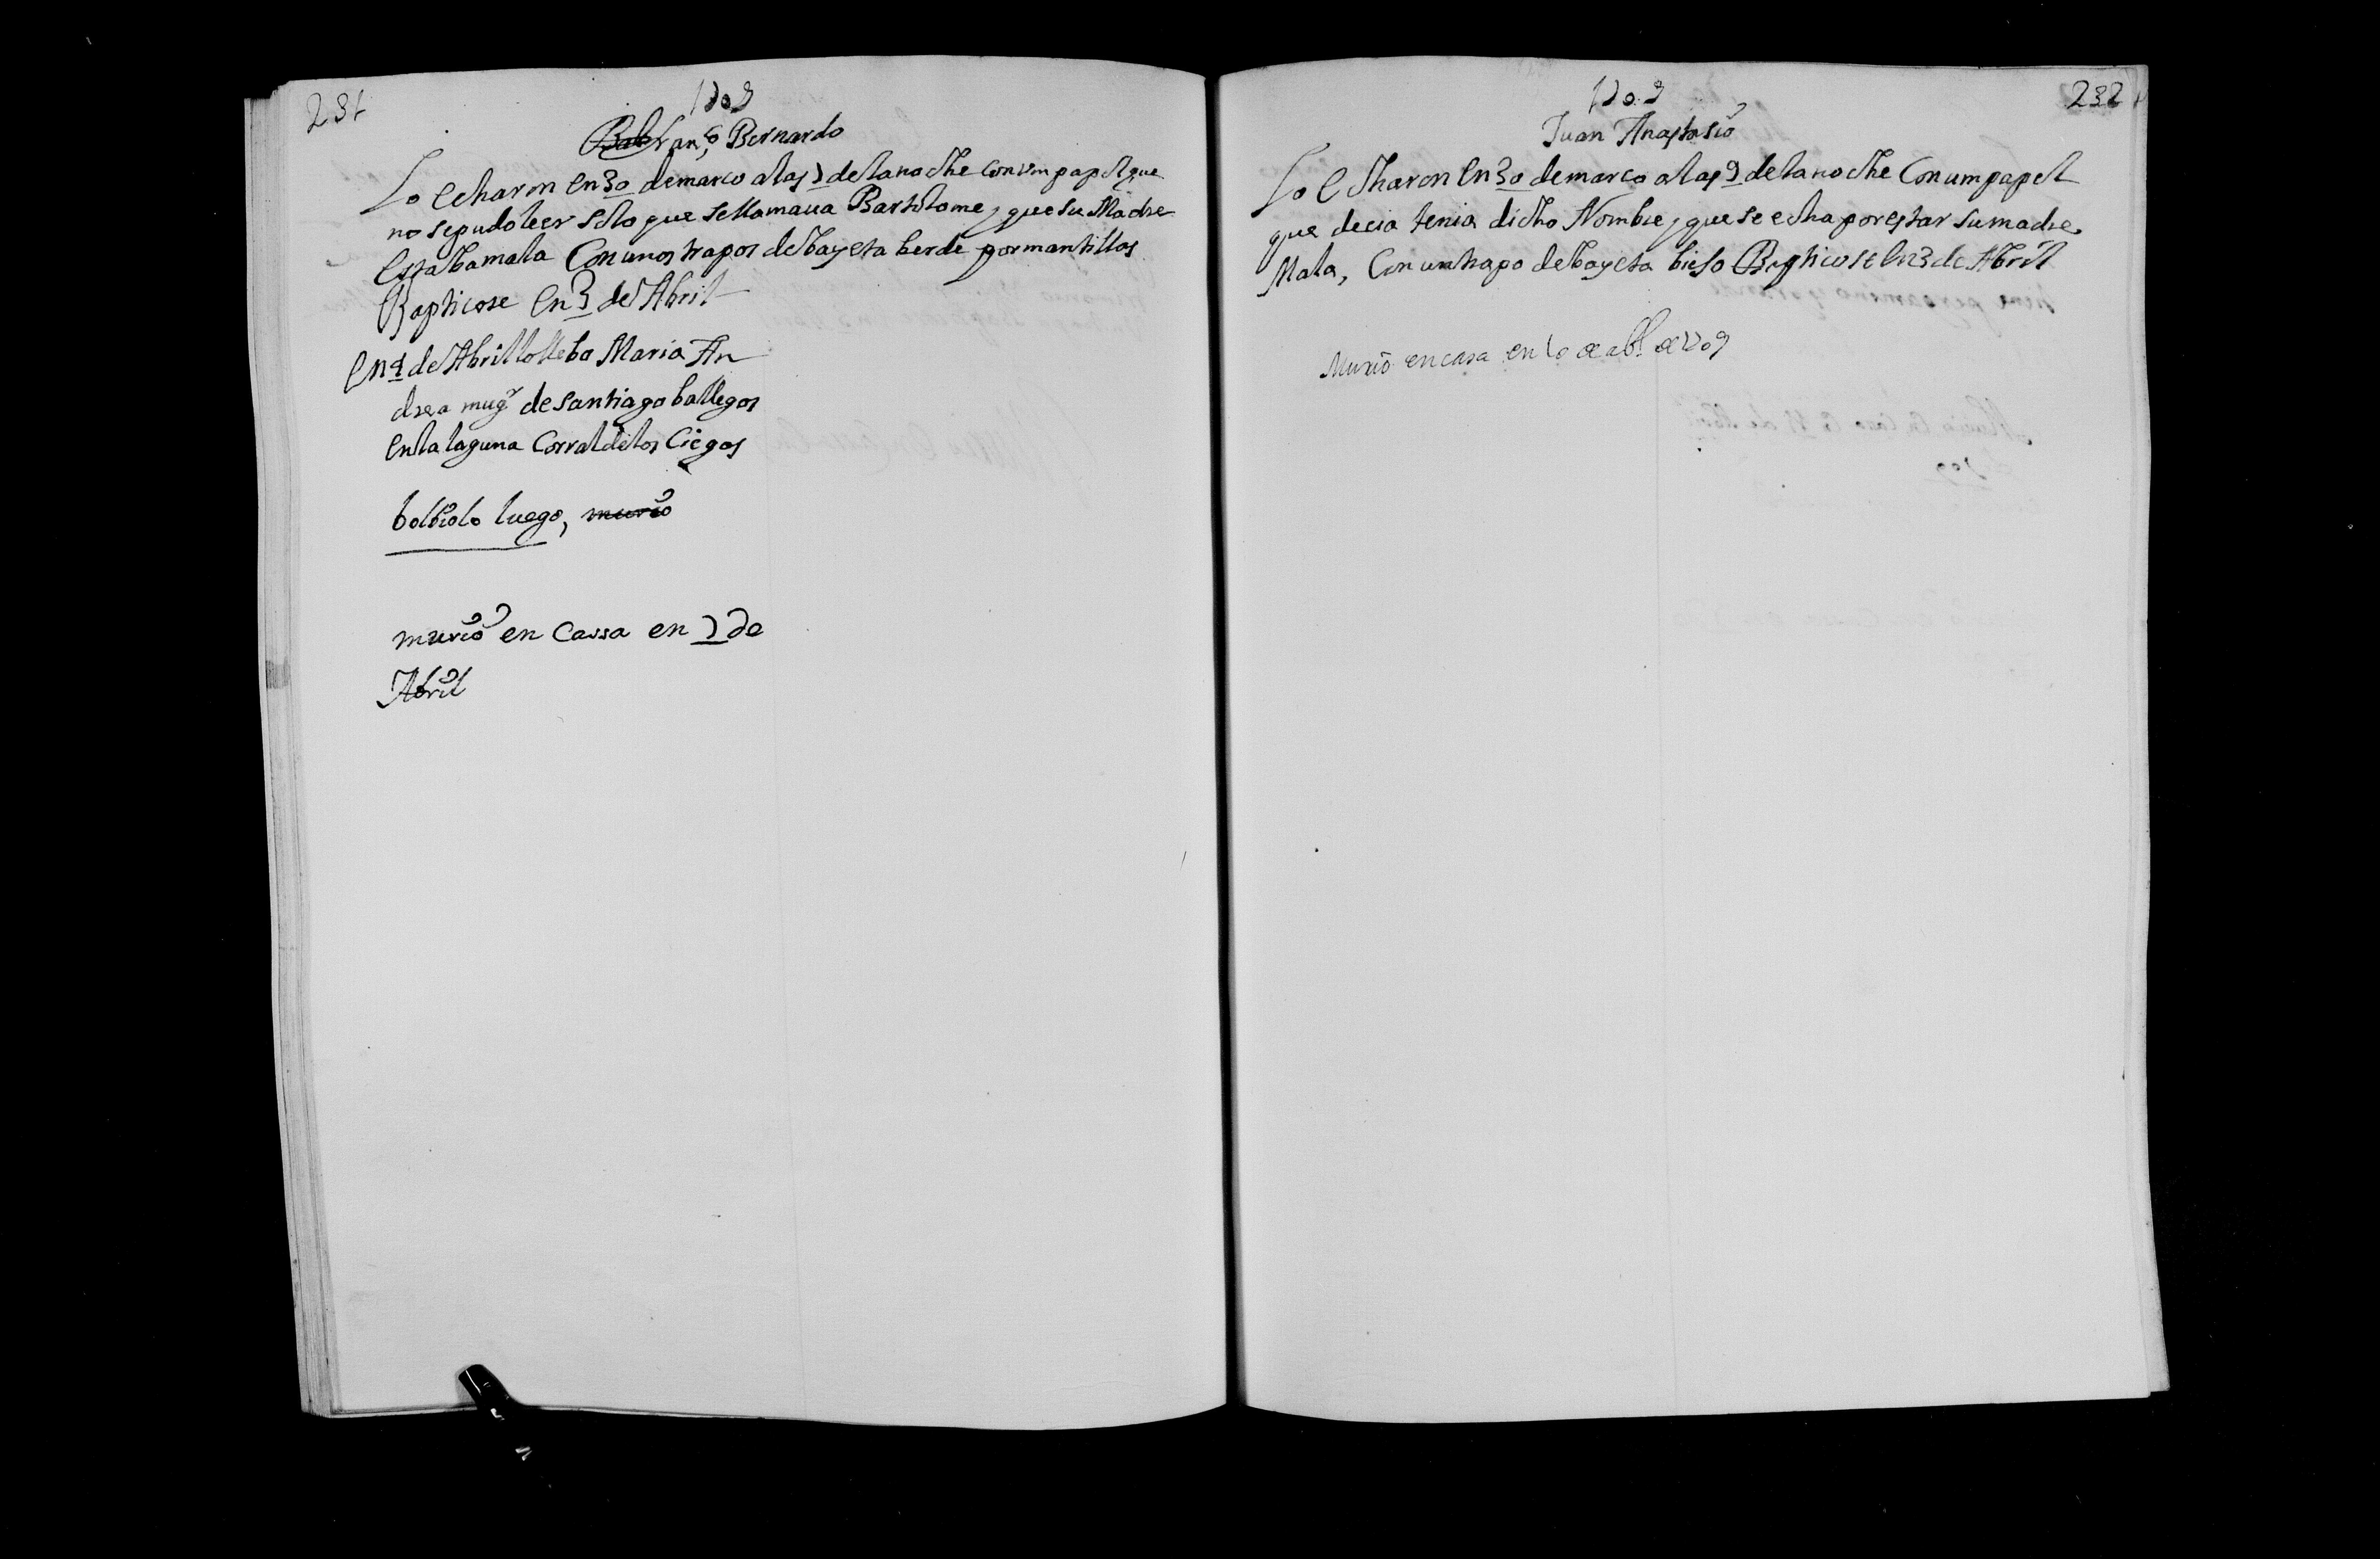 231
1709
Franco Bernardo
Lo echaron en 30 de marco a las 7 de la noche con vm papel que
no se pudo leer solo que se llamaua Bartolome, y que su Madre
estaba mala Con unos trapos de bayeta berde por mantillas
Bapticose en 3 de Abril
en 4 de Abril lo llebo Maria An
drea mugr de santiago ballegos
en la laguna Corral de los Ciegos
bolbiolo luego, murio
murio en Cassa en 7 de
Abril
1709
232
Juan Anastasio
Lo echaron en 30 de marco a las 9 de la noche Con um papel
que decia tenia dicho Nombre, y que se echa por estar su madre
Mala, Con un trapo de bayeta bieso Bapticose en 3 de Abril
Murio en casa en 10 de abl de 1709